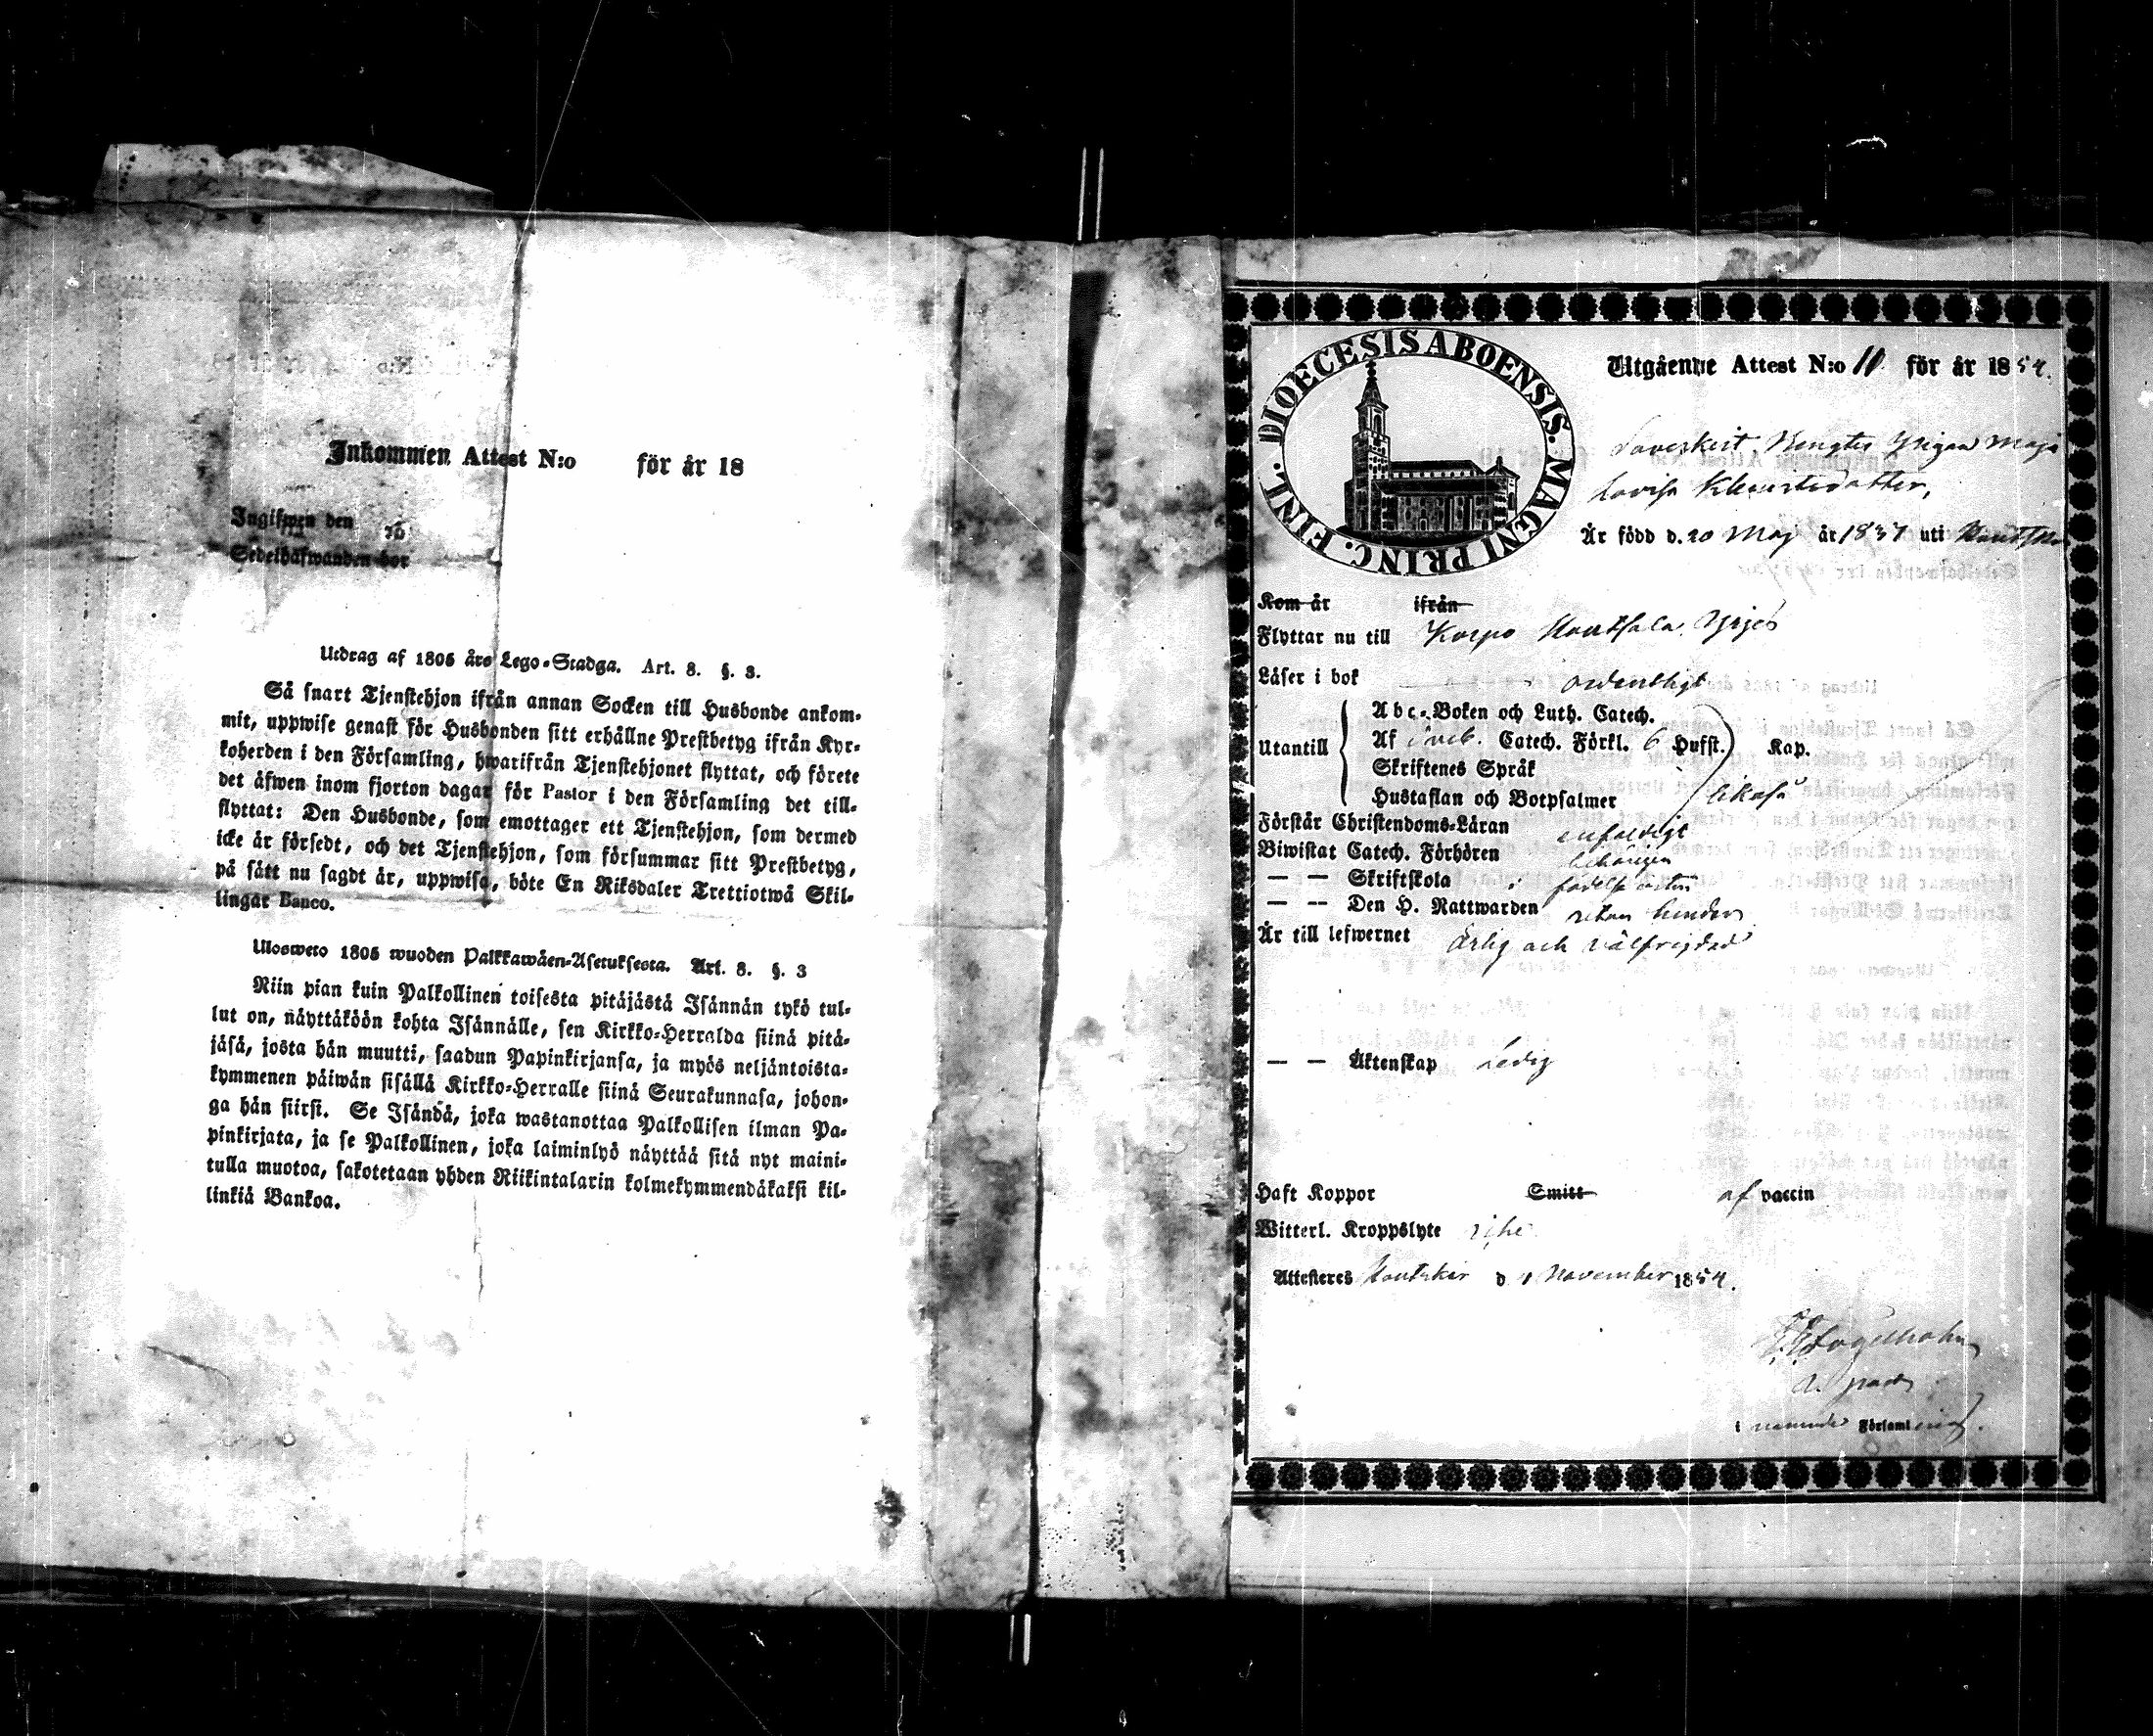 Inkommen Attest N:o för år 18
Ingifwen den
Sedelhafwanden bor
Utdrag af 1805 års Lego-Stadga. Art. 8. §. 3.
Så snart Tjenstehjon ifrån annan Socken till Husbonde ankom-
mit, uppwise genast för Husbonden sitt erhållne Prestbetyg ifrån Kyr-
koherden i den Församling, hwarifrån Tjenstehjonet flyttat, och förete
det äfwen inom fjorton dagar för Pastor i den Församling det till-
flyttat: Den Husbonde, som emottager ett Tjenstehjon, som dermed
icke är försedt, och det Tjenstehjon, som försummar sitt Prestbetyg,
på sätt nu sagdt är, uppwisa, böte En Riksdaler Trettiotwå Skil-
lingar Banco.
Ulosweto 1805 wuoden Palkkawäen-Asetuksesta. Art. 8. §. 3
Niin pian kuin Palkollinen toisesta pitäjästä Isännän tykö tul-
lut on, näyttäköön kohta Isännälle, sen Kirkko-Herralda siinä pitä-
jäsä, josta hän muutti, saadun Papinkirjansa, ja myös neljäntoista-
kymmenen päiwän sisällä Kirkko-Herralle siinä Seurakunnasa, johon-
ga hän siirsi. Se Isändä, joka wastanottaa Palkollisen ilman Pa-
pinkirjata, ja se Palkollinen, joka laiminlyö näyttää sitä nyt maini-
tulla muotoa, sakotetaan yhden Riikintalarin kolmekymmendäkaksi kil-
linkiä Bankoa.
DIOECESIS ABOENSIS. MAGNI PRINC. FINL.
Utgående Attest N:o 11 för år 1854.
Bengts Pigan Maja
Lovisa
Är född d. 20 Maj år 1837 uti
Kom år ifrån
Flyttar nu till Korpo
Läser i bok ordentligt
Abc-Boken och Luth. Catech.
Utantill Af Catech. Förkl. 6 Hufst. Kap.
Skriftenes Språk
Hustaflan och Botpsalmer likaså
Förstår Christendoms-Läran enfaldigt
Biwistat Catech. Förhören behörigen
— — Skriftskola
— — Den H. Nattwarden utan hinder
Är till lefwernet ärlig och välfrejdad
— — Äktenskap Ledig
Haft Koppor Smitt af vaccin
Witterl. Kroppslyte icke
Attesteres Houtskär d 1 November 1854.
i Församling.